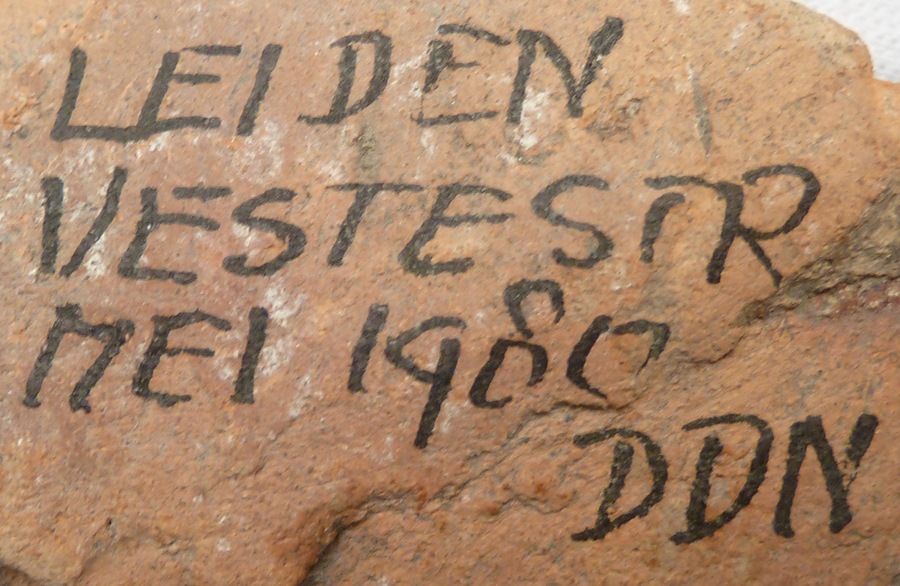 LEIDEN
VESTESTR
MEI 1980
DDN